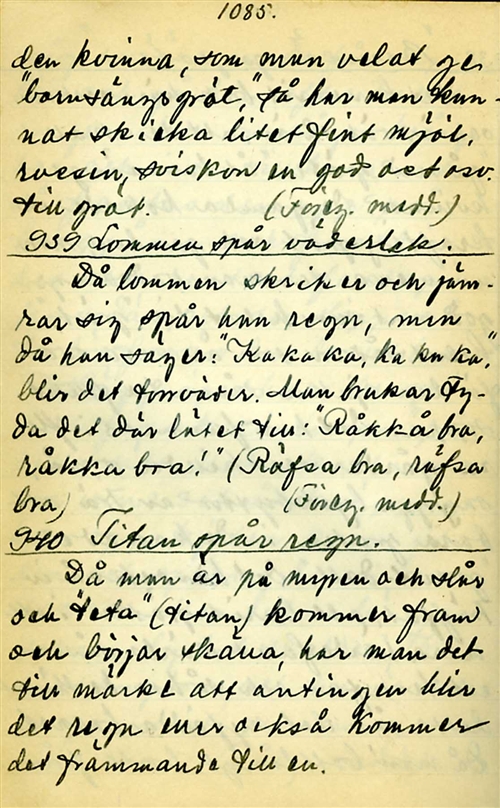 1085.
den kvinna, som mun velat ge
"barnsängsgröt," så har man kun-
nat skicka litet fint mjöl,
russin, sviskon en god ost osv.
till gröt. (Föreg. medd.)
939 Lommen spår väderlek.
Då lommen skriker och jäm-
rar sig spår hun regn, men
då hun säger: "Ka ka ka, ka ka ka,"
blir det torrväder. Man brukar ty-
da det där lätet till: "Råkkå bra,
råkka bra!" (Räfsa bra, räfsa
bra) (Föreg. medd.)
940 Titan spår regn.
Då mun är på myren och slår
och "teta" (titan) kommer fram
och börjar skälla, har man det
till märke att antingen blir
det regn eller också kommer
det främmande till en.